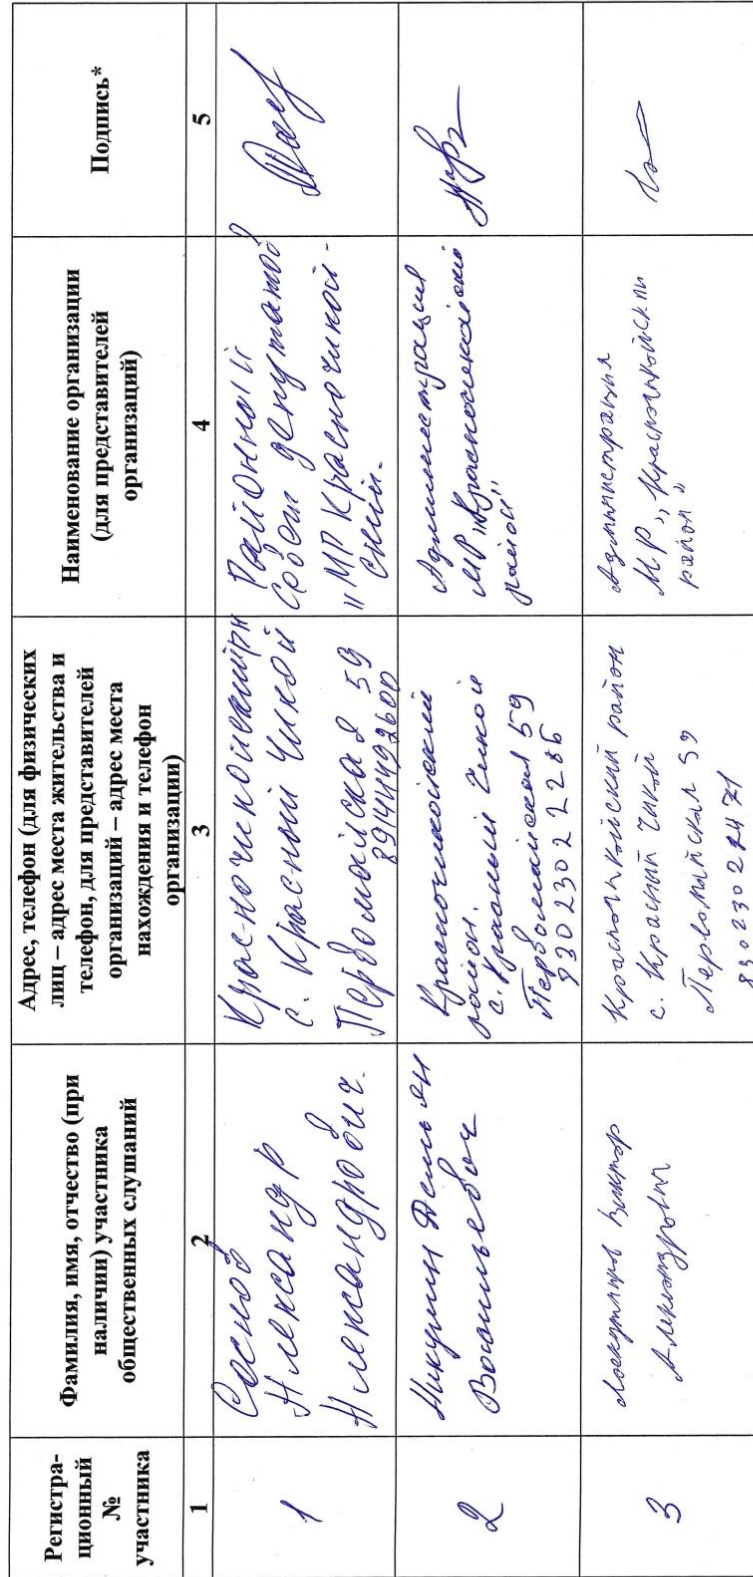 Регистра-
ционный
№
участника
Фамилия, имя, отчество (при
наличии) участника
общественных слушаний
Адрес, телефон (для физических
лиц – адрес места жительства и
телефон, для представителей
организаций – адрес места
нахождения и телефон
организации)
Наименование организации
(для представителей
организаций)
Подпись*
1
2
3
4
5
1
Соснов
Александр
Александрович.
Красночикойский рн
с. Красный Чикой
Первомайская 59
89144492600
Районный
Совет депутатов
"МР Красночикой-
ский.
2
Никулин Демьян
Васильевич
Красночикойский
район.
с. Красный Чикой
Первомайская 59
83023022286
Администрация
МР "Красночикойский
район"
3
Виктор
Александрович
Красночикойский район
с. Красный Чикой
Первомайская 59
Администрация
МР "Красночикойский
район"